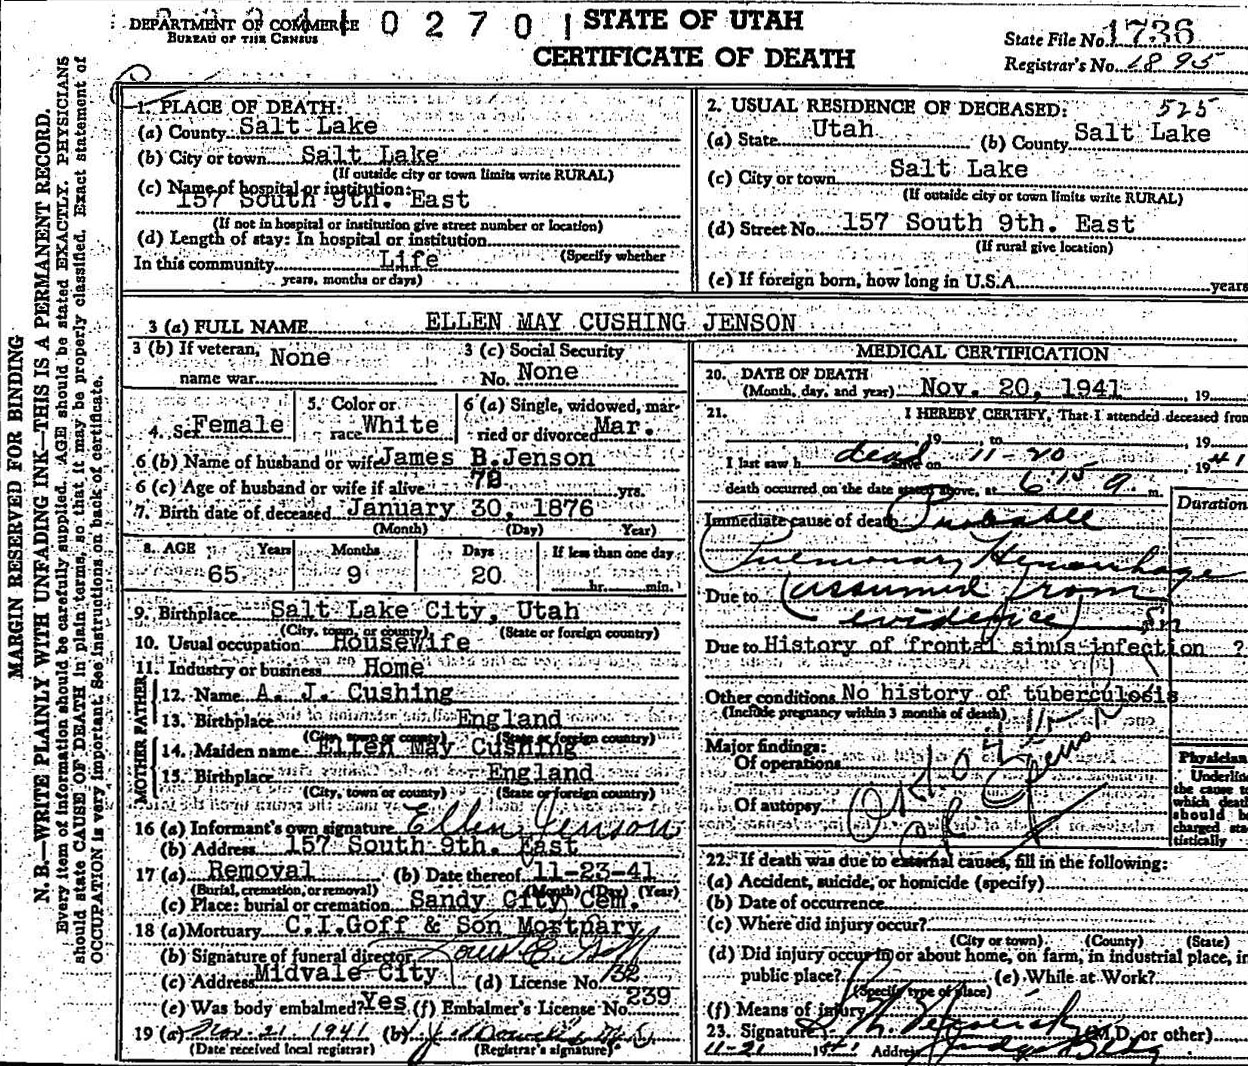 DEPARTMENT OF COMMERCE
BUREAU OF THE CENSUS
0 2 7 0 1
STATE OF UTAH
CERTIFICATE OF DEATH
State File No. 1736
Registrar's No. 1895
MARGIN RESERVED FOR BINDING
N. B.—WRITE PLAINLY WITH UNFADING INK—THIS IS A PERMANENT RECORD.
Every item of information should be carefully supplied. AGE should be stated EXACTLY. PHYSICIANS
should state CAUSE OF DEATH in plain terms, so that it may be properly classified. Exact statement of
OCCUPATION is very important. See instructions on back of certificate.
1. PLACE OF DEATH:
(a) County Salt Lake
(b) City or town Salt Lake
(If outside city or town limits write RURAL)
(c) Name of hospital or institution:
157 South 9th. East
(If not in hospital or institution give street number or location)
(d) Length of stay: In hospital or institution
(Specify whether
In this community Life
years, months or days)
2. USUAL RESIDENCE OF DECEASED: 525
(a) State Utah (b) County Salt Lake
(c) City or town Salt Lake
(If outside city or town limits write RURAL)
(d) Street No. 157 South 9th. East
(If rural give location)
(e) If foreign born, how long in U.S.A. years
3 (a) FULL NAME ELLEN MAY CUSHING JENSON
3 (b) If veteran, None
name war
3 (c) Social Security
No. None
4. Sex Female
5. Color or
race White
6 (a) Single, widowed, mar-
ried or divorced Mar.
6 (b) Name of husband or wife James B. Jenson
6 (c) Age of husband or wife if alive yrs.
7. Birth date of deceased January 30, 1876
(Month) (Day) Year)
8. AGE Years Months Days If less than one day
65 9 20 hr. min.
9. Birthplace Salt Lake City, Utah
(City, town, or county) (State or foreign country)
10. Usual occupation Housewife
11. Industry or business Home
FATHER
12. Name A. J. Cushing
13. Birthplace England
(City, town or county) (State or foreign country)
MOTHER
14. Maiden name Ellen May Cushing
15. Birthplace England
(City, town or county) (State or foreign country)
16 (a) Informant's own signature Ellen Jenson
(b) Address 157 South 9th. East
17 (a) Removal (b) Date thereof 11-23-41
(Burial, cremation, or removal) (Month) (Day) (Year)
(c) Place: burial or cremation Sandy City Cem.
18 (a) Mortuary C.I.Goff & Son Mortuary
(b) Signature of funeral director
(c) Address Midvale City (d) License No. 32
(e) Was body embalmed? Yes (f) Embalmer's License No. 239
19 (a) Nov. 21 1941 (b)
(Date received local registrar) (Registrar's signature)
MEDICAL CERTIFICATION
20. DATE OF DEATH
(Month, day, and year) Nov. 20, 1941, 19
21. I HEREBY CERTIFY, That I attended deceased from
, 19 , to , 19
I last saw h dead alive on 11-20, 1941
death occurred on the date stated above, at 6:15 m.
Duration
Immediate cause of death Probable
Pulmonary Hemorrhage
Due to (assumed from
evidence)
Due to History of frontal sinus infection ?
Other conditions No history of tuberculosis
(Include pregnancy within 3 months of death)
Major findings:
Of operations
Of autopsy
Physician
Underline
the cause to
which death
should be
charged sta-
tistically
22. If death was due to external causes, fill in the following:
(a) Accident, suicide, or homicide (specify)
(b) Date of occurrence
(c) Where did injury occur?
(City or town) (County) (State)
(d) Did injury occur in or about home, on farm, in industrial place, in
public place? (e) While at Work?
(Specify type of place)
(f) Means of injury
23. Signature (M.D. or other)
11-21 1941 Address Judge Bldg